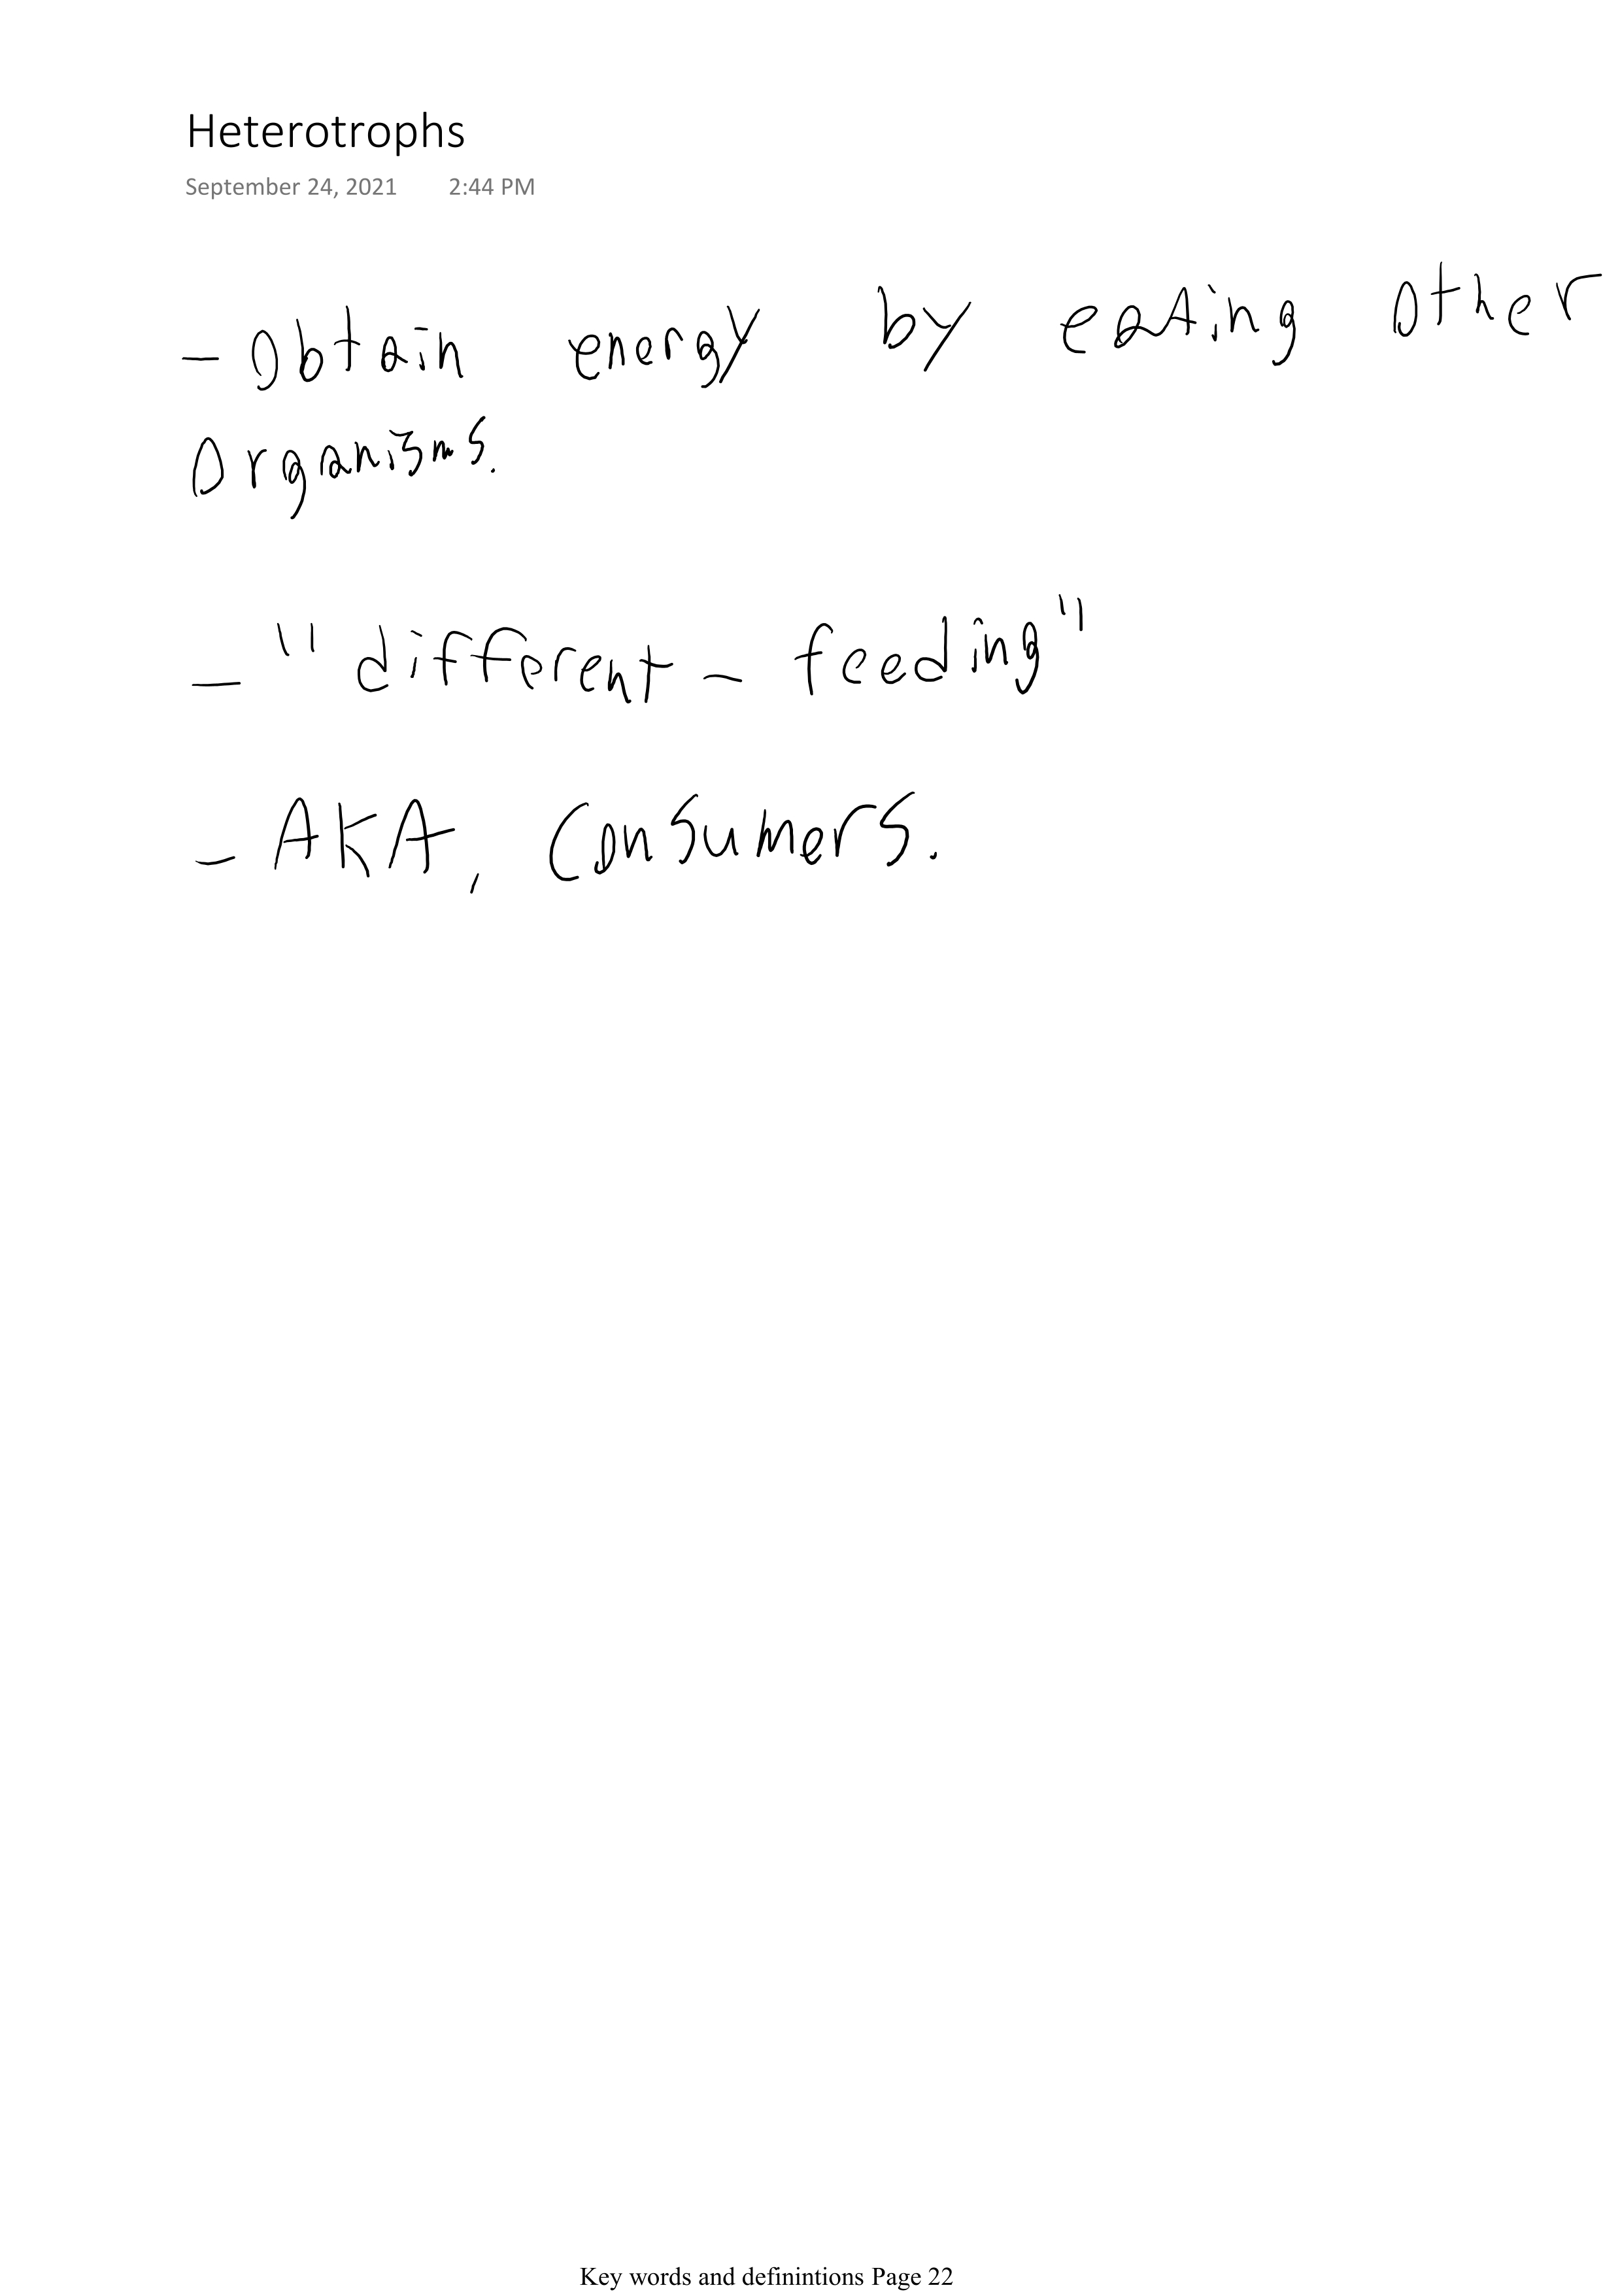 Heterotrophs
September 24, 2021 2:44 PM
- Obtain energy by eating other
Organisms.
- "different - feeding"
- AKA, Consumers.
Key words and definintions Page 22